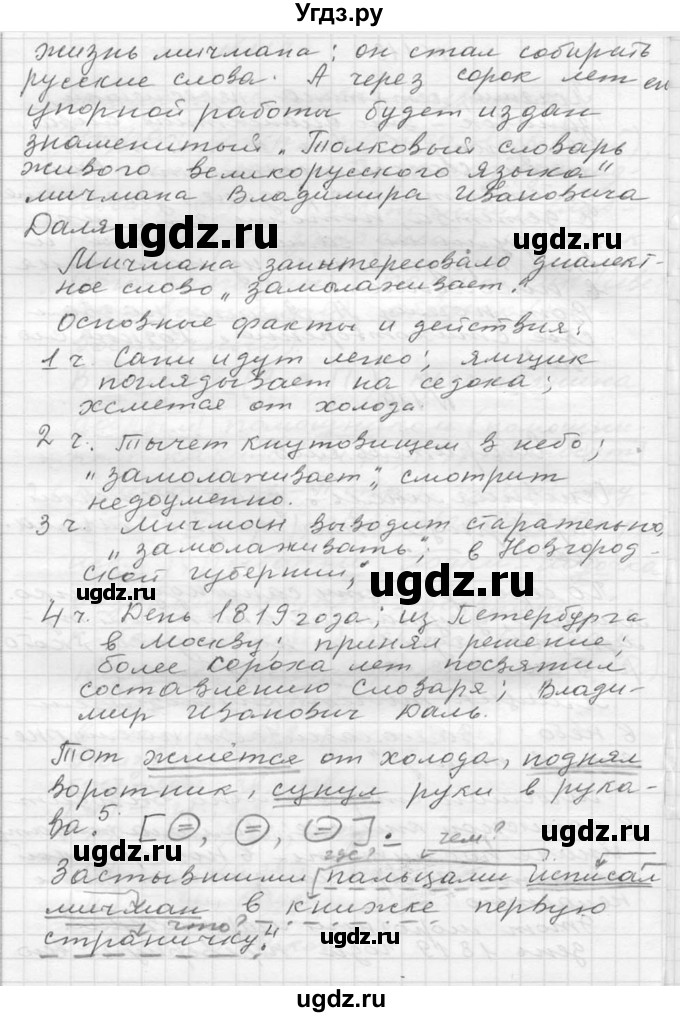 Угдз.ру
жизнь мичмана: он стал собирать
русские слова. А через сорок лет
упорной работы будет издан
знаменитый „Толковый словарь
живого великорусского языка"
мичмана Владимира Ивановича
Даля
ugdz.ru
ugdz.ru
Мичмана заинтересовало диалект-
ное слово „замолаживает".
Основные факты и действия:
1 ч. Сани идут легко; ямщик
поглядывает на седока;
жмется от холода.
ugdz.ru
2 ч. Тычет кнутовищем в небо;
„замолаживает"; смотрит
недоуменно.
3 ч. Мичман выводит старательно,
„замолаживать"; в Новгород-
ской губернии;
ugdz.ru
4 ч. День 1819 года; из Петербурга
в Москву; принял решение;
более сорока лет посвятил
составлению словаря; Влади-
мир Иванович Даль.
ugdz.ru
Тот жмётся от холода, поднял
воротник, сунул руки в рука-
ва.⁵ [=, =, =].
где? чем?
Застывшими пальцами исписал
мичман в книжке первую
что?
страничку.⁴
ugdz.ru
ugdz.ru
ugdz.ru